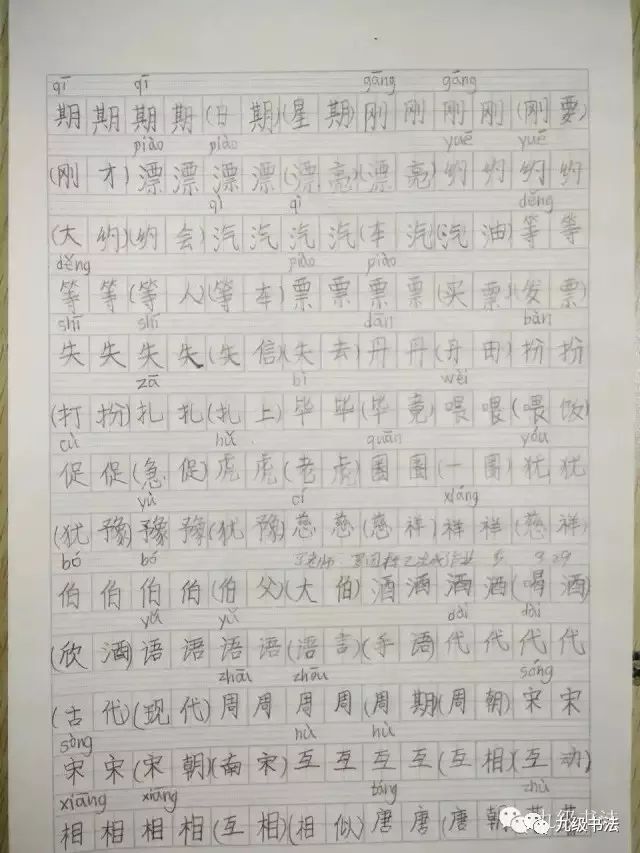 qī qī gāng gāng
期期期期(日期)(星期)刚刚刚刚(刚要)
piào piào yuē yuē
(刚才)漂漂漂漂(漂亮)(漂亮)约约约约
qì qì děng
(大约)(约会)汽汽汽汽(车汽)(汽油)等等
děng piào piào
等等(等人)(等车)票票票票(买票)(发票)
shī shī dān bàn
失失失失(失信)(失去)丹丹(丹田)扮扮
zā bì wèi
(打扮)扎扎(扎上)毕毕(毕竟)喂喂(喂饭)
cù hǔ quān yóu
促促(急促)虎虎(老虎)圈圈(一圈)犹犹
yù cí xiáng
(犹豫)豫豫(犹豫)慈慈(慈祥)祥祥(慈祥)
bó bó
伯伯伯伯(伯父)(大伯)酒酒酒酒(喝酒)
yǔ yǔ dài dài
(欣酒)语语语语(语言)(手语)代代代代
zhōu zhōu sòng
(古代)(现代)周周周周(周期)(周朝)宋宋
sòng hù hù
宋宋(宋朝)(南宋)互互互互(互相)(互动)
xiāng xiāng táng zhù
相相相相(互相)(相似)唐唐(唐朝)
九级书法